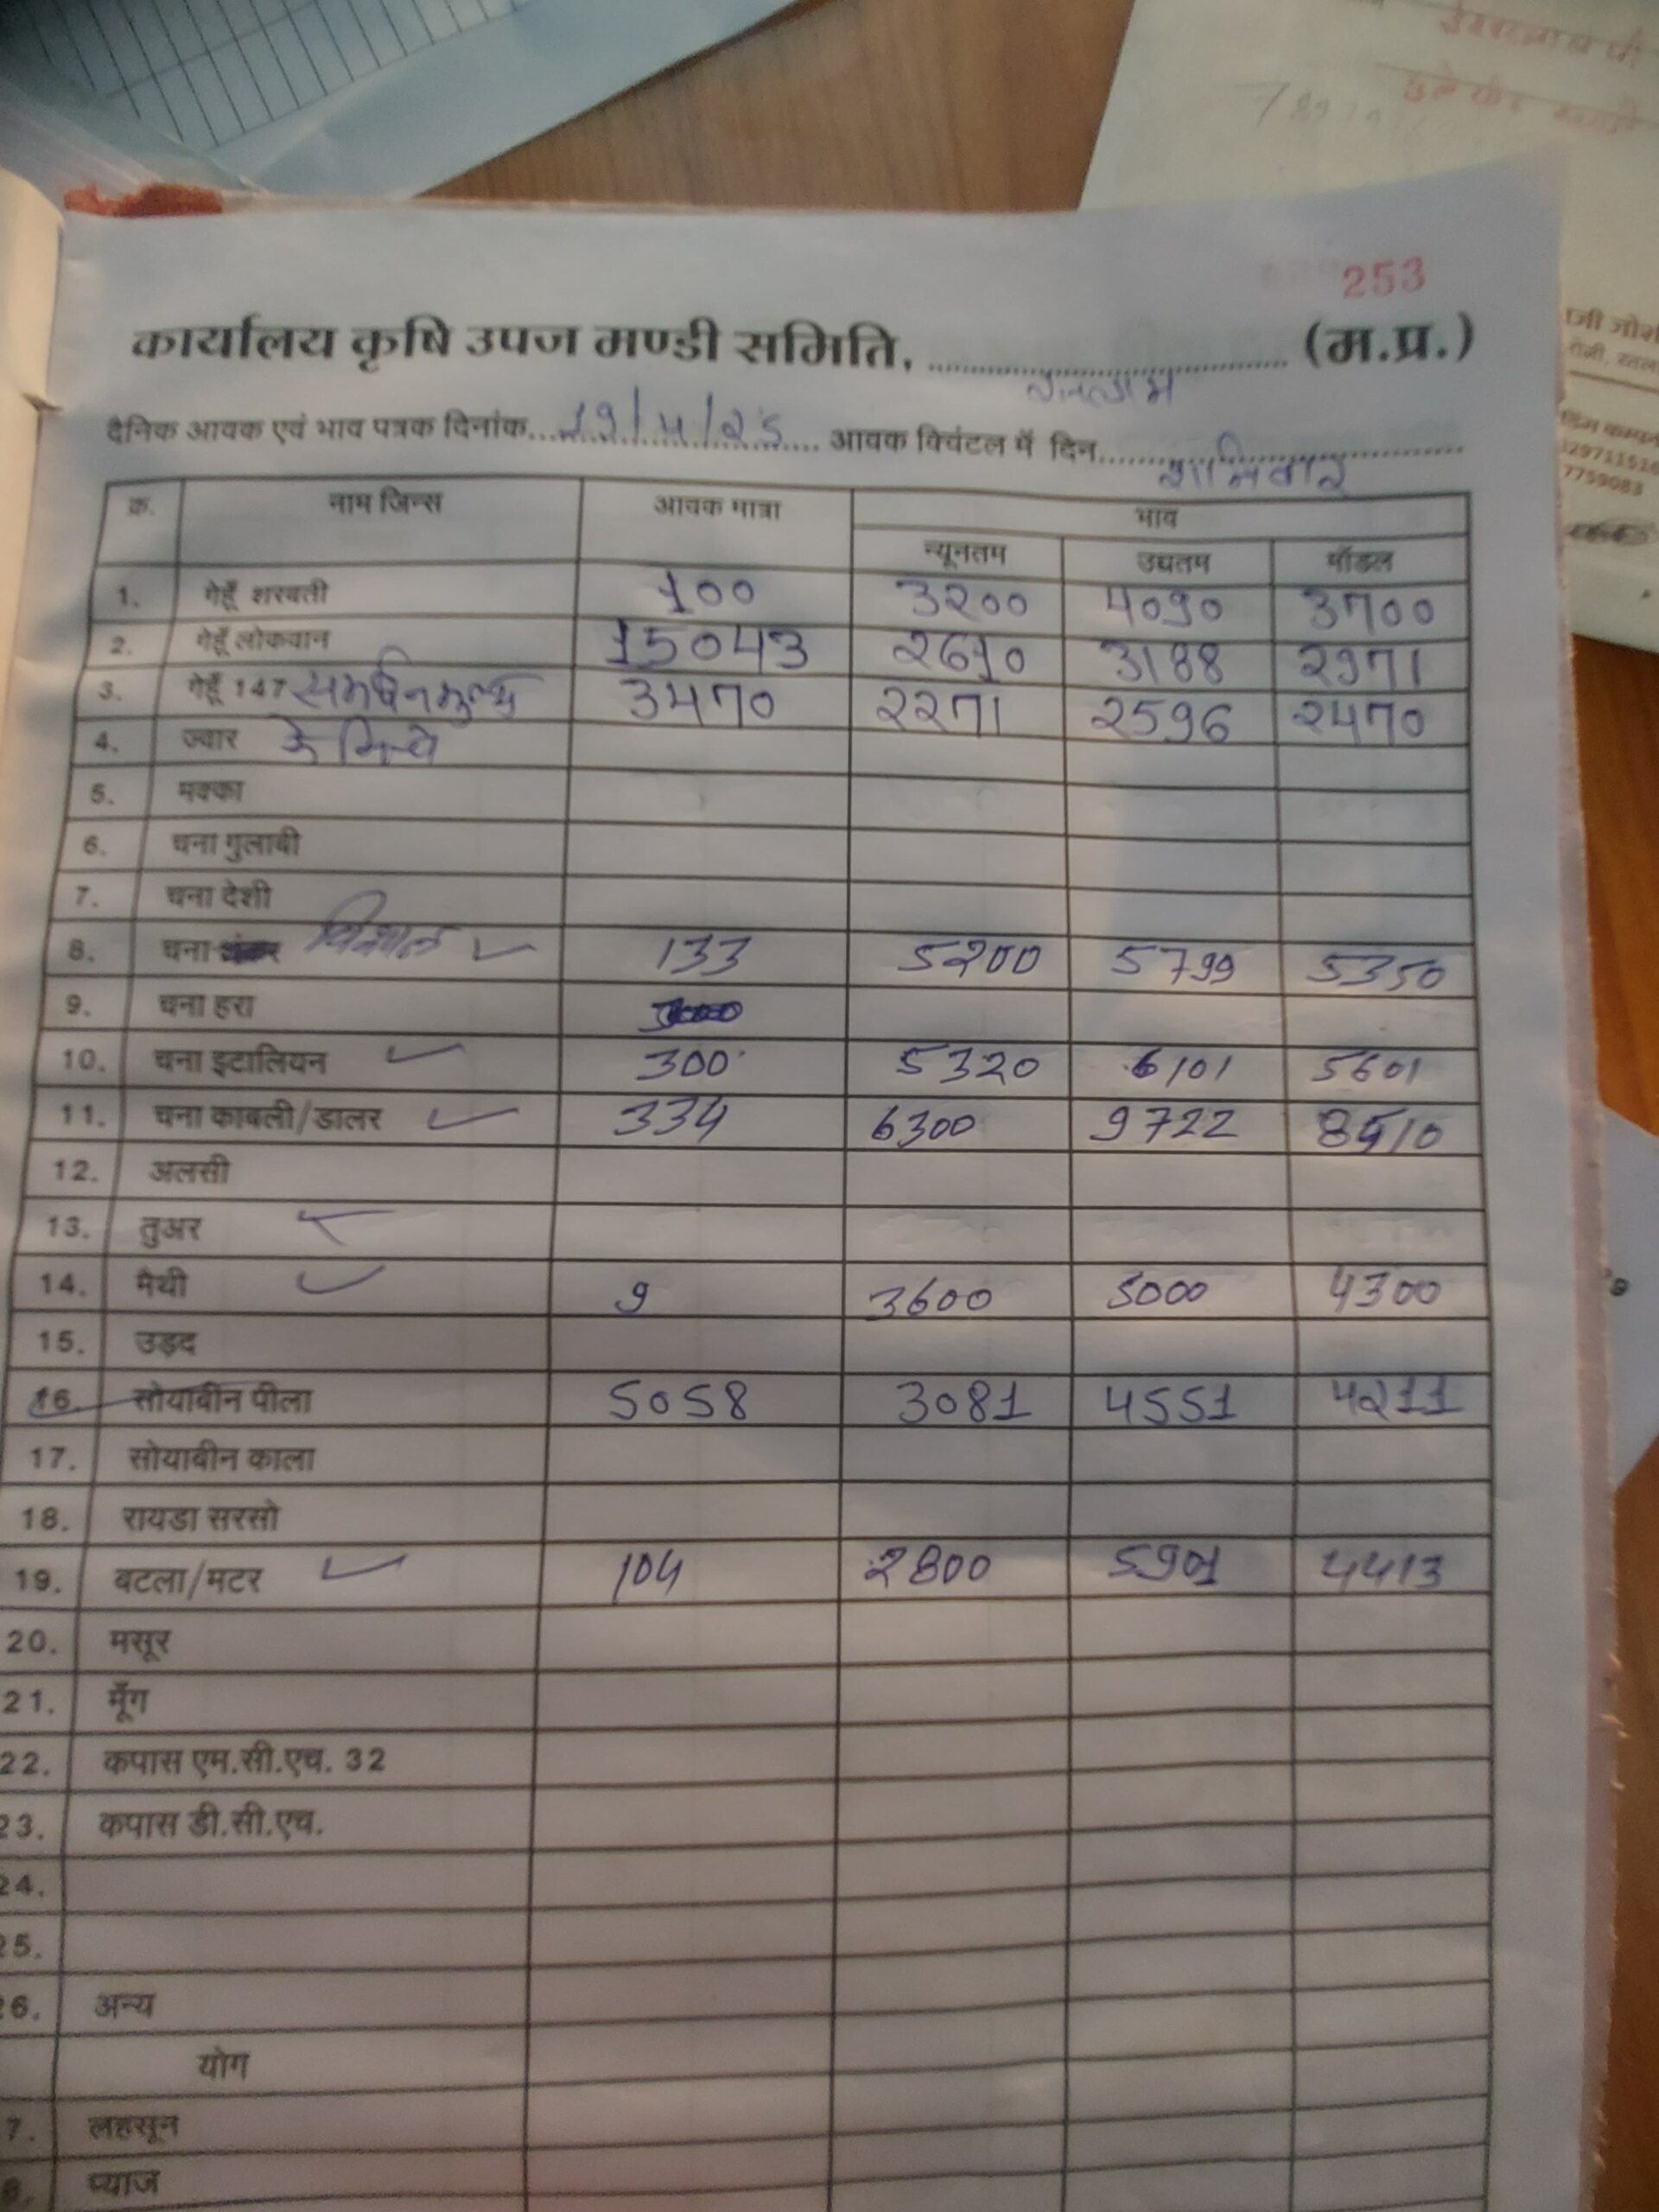 253
कार्यालय कृषि उपज मण्डी समिति, (म.प्र.)
रतलाम
दैनिक आवक एवं भाव पत्रक दिनांक 19/4/25 आवक क्विंटल में दिन शनिवार
क्र. नाम जिन्स आवक मात्रा भाव
न्यूनतम उच्चतम मॉडल
1. गेहूँ शरबती 100 3200 4090 3700
2. गेहूँ लोकवान 15043 2610 3188 2971
3. गेहूँ 147 समर्थन मुल्य 3470 2271 2596 2470
4. ज्वार के
5. मक्का
6. चना गुलाबी
7. चना देशी
8. चना विशाल 133 5200 5799 5350
9. चना हरा
10. चना इटालियन 300 5320 6101 5601
11. चना काबली/डालर 334 6300 9722 8510
12. अलसी
13. तुअर
14. मैथी 9 3600 5000 4300
15. उड़द
16 सोयाबीन पीला 5058 3081 4551 4211
17. सोयाबीन काला
18. रायडा सरसो
19. बटला/मटर 104 2800 5901 4413
20. मसूर
21. मूँग
22. कपास एम.सी.एच. 32
23. कपास डी.सी.एच.
24.
25.
26. अन्य
योग
7. लहसून
8. प्याज